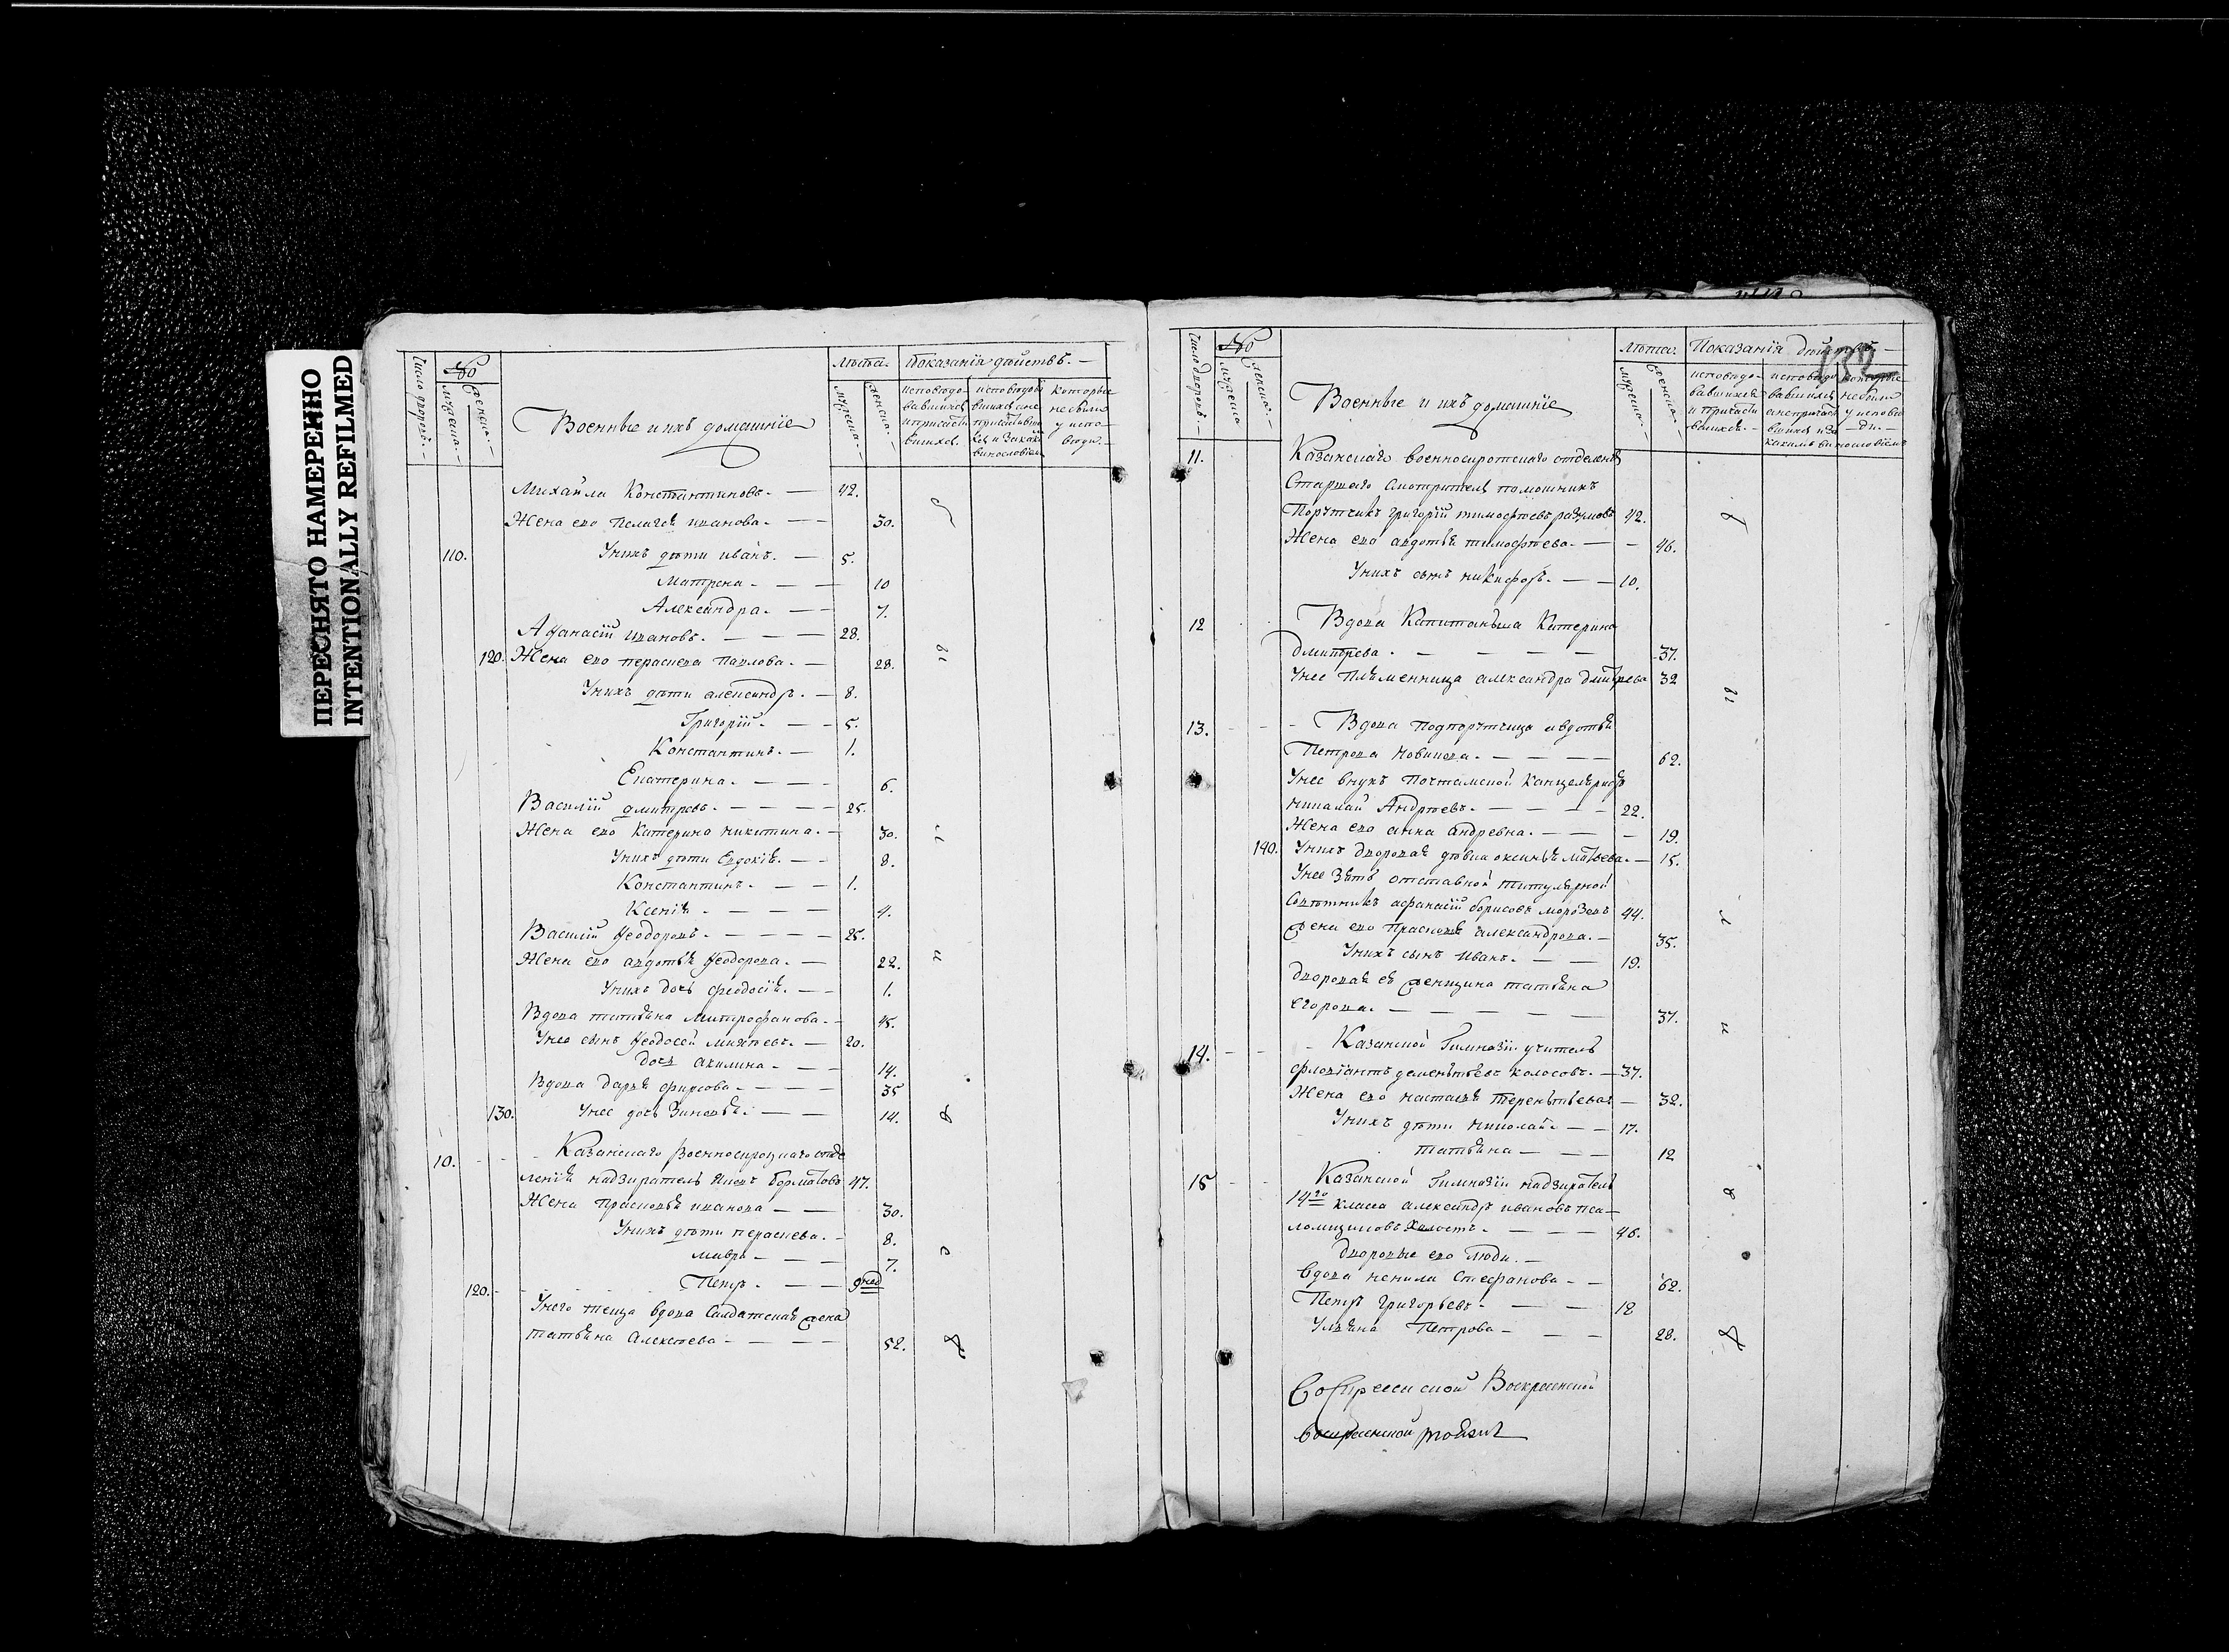 ПЕРЕСНЯТО НАМЕРЕННО
INTENTIONALLY REFILMED
Число дворовъ.
№
мужеска.
женска.
Военные и ихъ домашніе
Лѣта.
мужеска.
женска.
Показанія дѣйствъ.
исповѣдо-
вавшихся
и причасти
вшихся.
которые
не были
у испо-
вѣди.
Михайла Константиновъ. — 42.
Жена его Пелагея иванова. — 30.
110. Унихъ дѣти иванъ. — 5.
Матрена. — 10
Александра. — 7.
Афанасій ивановъ. — 28.
120. Жена его перасковa павлова. — 28.
Унихъ дѣти александръ. — 8.
Григорій. — 5.
Константинъ. — 1.
Екатерина. — 6.
Василій дмитревъ. — 25.
Жена его Катерина никитина. — 30.
Унихъ дѣти Евдокія. — 8.
Константинъ. — 1.
Ксенія. — 4.
Василій Ѳеодоровъ. — 25.
Жена его авдотья Ѳеодорова. — 22.
Унихъ дочь феодосія. — 1.
Вдова татьяна Митрофанова. — 45.
Унее сынъ Ѳеодосей — 20.
дочь акилина. — 14.
Вдова дарья фирсова — 35
130. Унее дочь Зиновья. — 14.
10. Казанскаго Военносиротскаго отдѣ
ленія надзиратель 47.
Жена Прасковья иванова — 30.
Унихъ дѣти — 8.
мавра — 7.
120. Петръ. — 9 нед
Унего теща вдова Салдатская жена
татьяна Алексѣева — 52.
132
Число дворовъ.
№
мужеска
женска.
Военные и ихъ домашніе
Лѣта.
мужеска.
женска.
Показанія дѣйствъ —
исповѣдо-
вавшихся
и причасти
вшихся. —
которые
не были
у исповѣ
ди. —
11. Казанскаго военносиротскаго отделенія
Старшаго Смотрителя помошникъ
Порутчикъ григорій тимофѣевъ 42.
Жена его авдотья тимофѣева. — 46.
Унихъ сынъ никифоръ. — 10.
12 Вдова Капитанша Катерина
дмитрева. — 37.
Унее племенница александра дмитрева 32
13. Вдова подпорутчица авдотья
Петрова новикова. — 62.
Унее внукъ почтамской Канцеляристъ
николай Андрѣевъ. — 22.
Жена его анна андревна. — 19.
140. Унихъ дворовая дѣвка оксинья матвева. — 15.
Унее Зять отставной титулярной
Совѣтникъ афанасій борисовъ морозовъ 44.
жена его прасковья александрова. — 35.
Унихъ сынъ иванъ. — 19.
дворовая ея женщина татьяна
егорова. — 37.
14. Казанской Гимназіи учитель
дементьевъ колосовъ. — 37.
Жена его настасья терентьева — 32.
Унихъ дѣти николай — 17.
татьяна — 12
15 Казанской Гимназіи надзиратель
14го класса александръ ивановъ пса-
ломщиковъ холостъ. — 46.
дворовые его люди. —
вдова ненила Стефанова — 62.
Петръ григорьевъ — 12
Ульяна Петрова — 28.
Воскресенской
воскресенской